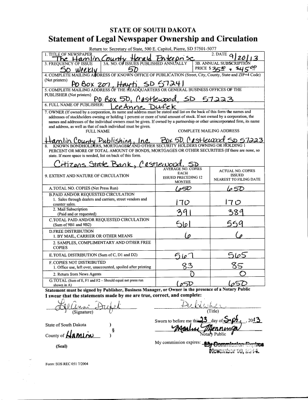 STATE OF SOUTH DAKOTA
Statement of Legal Newspaper Ownership and Circulation
Return to: Secretary of State, 500 E. Capitol, Pierre, SD 57501-5077
1. TITLE OF NEWSPAPER
The Hamlin County Herald Enterprise
2. DATE
9/20/13
3. FREQUENCY OF ISSUE
50 weekly
3A. NO. OF ISSUES PUBLISHED ANNUALLY
50
3B. ANNUAL SUBSCRIPTION
PRICE $
4. COMPLETE MAILING ADDRESS OF KNOWN OFFICE OF PUBLICATION (Street, City, County, State and ZIP+4 Code)
(Not printers)
PO Box 207, Hayti, SD 57241
5. COMPLETE MAILING ADDRESS OF THE HEADQUARTERS OR GENERAL BUSINESS OFFICES OF THE
PUBLISHER (Not printers)
PO Box 5D, Castlewood, SD 57223
6. FULL NAME OF PUBLISHER:
LeeAnne Dufek
7. OWNER (If owned by a corporation, its name and address must be stated and also immediately
FULL NAME
COMPLETE MAILING ADDRESS
Hamlin County Publishing Inc. Box 5D Castlewood SD 57223
8. KNOWN BONDHOLDERS, MORTGAGEES AND OTHER SECURITY HOLDERS OWNING OR HOLDING 1
PERCENT OR MORE OF TOTAL AMOUNT OF BONDS, MORTGAGES OR OTHER SECURITIES (If there are none, so
state. If more space is needed, list on back of this form)
Citizens State Bank, Castlewood, SD
9. EXTENT AND NATURE OF CIRCULATION
AVERAGE NO. COPIES
EACH
ISSUES PRECEDING 12
MONTHS
ACTUAL NO. COPIES
ISSUED
NEAREST TO FILING DATE
A. TOTAL NO. COPIES (Net Press Run)
650
650
B. PAID AND/OR REQUESTED CIRCULATION
1. Sales through dealers and carriers, street vendors and
counter sales
170
170
2. Mail Subscription
(Paid and or requested)
391
389
C. TOTAL PAID AND/OR REQUESTED CIRCULATION
(Sum of 9B1 and 9B2)
561
559
D. FREE DISTRIBUTION
1. BY MAIL, CARRIER OR OTHER MEANS
6
6
2. SAMPLES, COMPLIMENTARY AND OTHER FREE
COPIES
E. TOTAL DISTRIBUTION (Sum of C, D1 and D2)
567
565
F. COPIES NOT DISTRIBUTED
1. Office use, left over, unaccounted, spoiled after printing
83
85
2. Return from News Agents
0
0
650
650
Statement must be signed by Publisher, Business Manager, or Owner in the presence of a Notary Public
I swear that the statements made by me are true, correct, and complete:
(Signature)
Publisher
(Title)
State of South Dakota )
County of Hamlin )
(Seal)
Sworn to before me this 23 day of Sept, 2013
Notary Public
My commission expires:
My Commission Expires
November 18, 2014